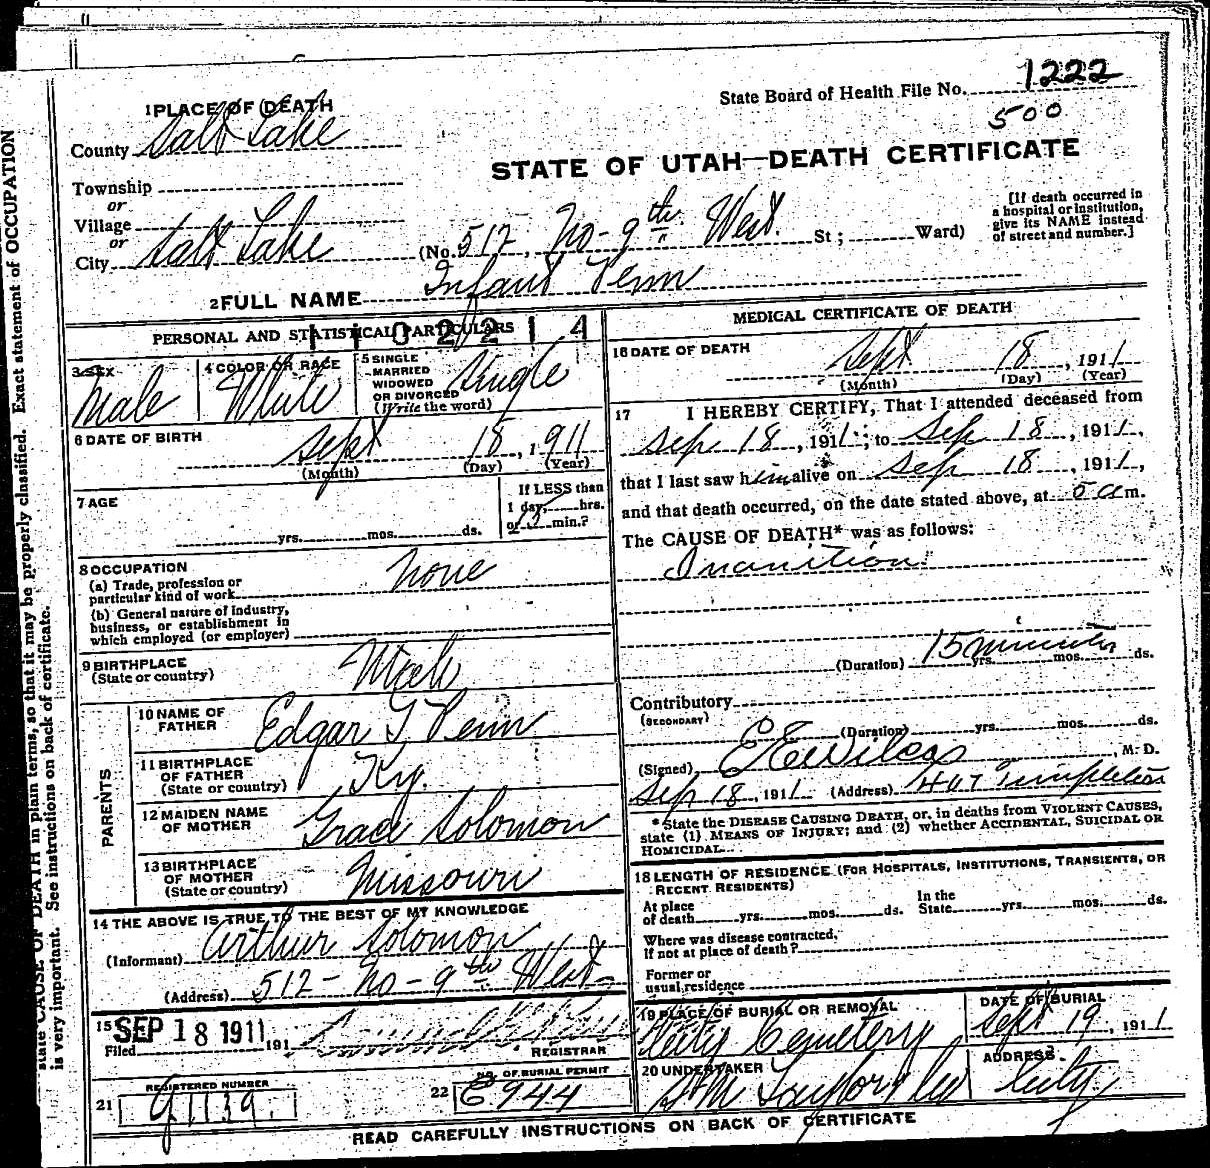 State Board of Health File No. 1222
500
1 PLACE OF DEATH
County Salt Lake
STATE OF UTAH—DEATH CERTIFICATE
Township
or
Village
or
City Salt Lake (No. 512, No-9th West. St; Ward)
[If death occurred in a hospital or institution, give its NAME instead of street and number.]
2 FULL NAME Infant Penn
PERSONAL AND STATISTICAL PARTICULARS
110221 4
3 SEX Male
4 COLOR OR RACE White
5 SINGLE MARRIED WIDOWED OR DIVORCED (Write the word) Single
6 DATE OF BIRTH Sept 18, 1911
(Month) (Day) (Year)
7 AGE
yrs. mos. ds.
If LESS than 1 day, hrs. or min.?
8 OCCUPATION
(a) Trade, profession or particular kind of work None
(b) General nature of industry, business, or establishment in which employed (or employer)
9 BIRTHPLACE (State or country) Utah
PARENTS
10 NAME OF FATHER Edgar G Penn
11 BIRTHPLACE OF FATHER (State or country) Ky.
12 MAIDEN NAME OF MOTHER Grace Solomon
13 BIRTHPLACE OF MOTHER (State or country) Missouri
14 THE ABOVE IS TRUE TO THE BEST OF MY KNOWLEDGE
(Informant) Arthur Solomon
(Address) 512-No-9th West
15 Filed SEP 18 1911 191
REGISTRAR
REGISTERED NUMBER
21 G1139.
NO. OF BURIAL PERMIT
22 E944
MEDICAL CERTIFICATE OF DEATH
16 DATE OF DEATH Sept 18, 1911
(Month) (Day) (Year)
17 I HEREBY CERTIFY, That I attended deceased from
Sep 18, 1911; to Sep 18, 1911,
that I last saw him alive on Sep 18, 1911,
and that death occurred, on the date stated above, at 5 am.
The CAUSE OF DEATH* was as follows:
Inanition
(Duration) 15 minutes yrs. mos. ds.
Contributory
(SECONDARY)
(Duration) yrs. mos. ds.
(Signed) E E Wilcox, M. D.
Sep 18, 1911 (Address) 407 Templeton
*State the DISEASE CAUSING DEATH, or, in deaths from VIOLENT CAUSES, state (1) MEANS OF INJURY; and (2) whether ACCIDENTAL, SUICIDAL OR HOMICIDAL.
18 LENGTH OF RESIDENCE (FOR HOSPITALS, INSTITUTIONS, TRANSIENTS, OR RECENT RESIDENTS)
At place of death yrs. mos. ds. In the State yrs. mos. ds.
Where was disease contracted, If not at place of death?
Former or usual residence
19 PLACE OF BURIAL OR REMOVAL City Cemetery
DATE OF BURIAL Sept 19, 1911
20 UNDERTAKER S M Taylor & Co
ADDRESS City.
READ CAREFULLY INSTRUCTIONS ON BACK OF CERTIFICATE
state CAUSE OF DEATH in plain terms, so that it may be properly classified. Exact statement of OCCUPATION
is very important. See instructions on back of certificate.